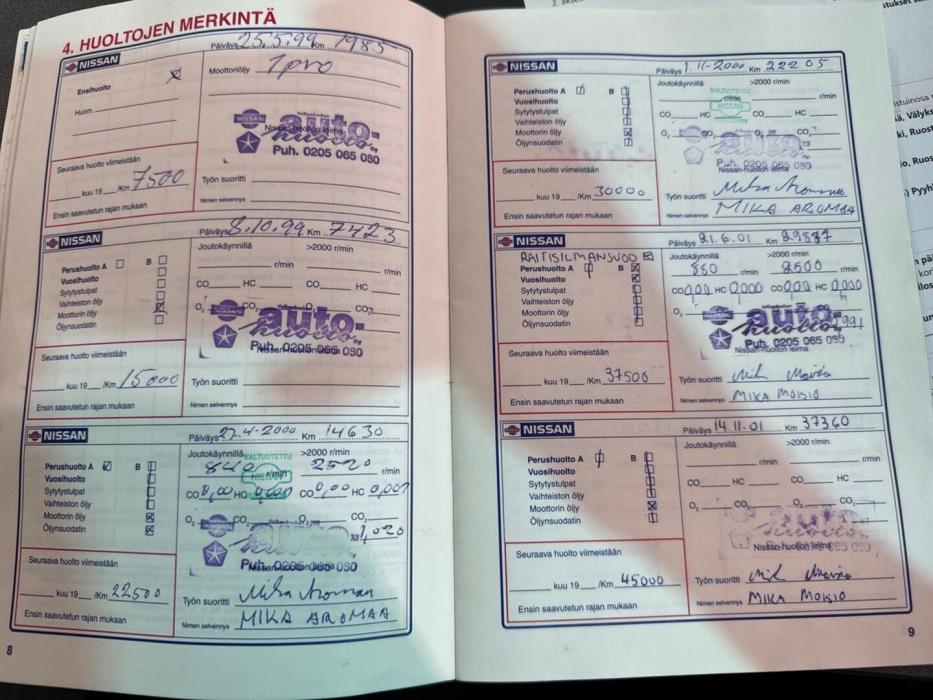 4. HUOLTOJEN MERKINTÄ
NISSAN
Päiväys 25.5.99 Km 1985
Ensihuolto
Moottoriöljy 1pro
Huom.
NISSAN
auto-
huolto Oy
Nissan-huollon leima
Puh. 0205 065 090
Seuraava huolto viimeistään
kuu 19 /Km 7500
Työn suoritti
Ensin saavutetun rajan mukaan
Nimen selvennys
NISSAN
Päiväys 8.10.99 Km 7423
Joutokäynnillä >2000 r/min
Perushuolto A B
r/min r/min
Vuosihuolto
Sytytystulpat
CO HC CO HC
Vaihteiston öljy
Moottorin öljy
O2 CO2 O2 CO2
Öljynsuodatin
auto-
huolto Oy
Nissan-huollon leima
Puh. 0205 065 090
Seuraava huolto viimeistään
kuu 19 /Km 15000
Työn suoritti
Ensin saavutetun rajan mukaan
Nimen selvennys
NISSAN
Päiväys 27.4-2000 Km 14630
Joutokäynnillä >2000 r/min
VALTUUTETTU
NISSAN
Perushuolto A B
840 r/min 2520 r/min
Vuosihuolto
Sytytystulpat
CO 0,00 HC 0,000 CO 0,00 HC 0,001
Vaihteiston öljy
Moottorin öljy
O2 CO2 O2 CO2
Öljynsuodatin
1,020
huolto
Nissan-huollon leima
Puh. 0205 065 090
Seuraava huolto viimeistään
kuu 19 /Km 22500
Työn suoritti Mika Aromaa
Ensin saavutetun rajan mukaan
Nimen selvennys MIKA AROMAA
8
NISSAN
Päiväys 1.11-2000 Km 22205
Joutokäynnillä >2000 r/min
VALTUUTETTU
NISSAN
Perushuolto A B
r/min r/min
Vuosihuolto
Sytytystulpat
CO HC CO HC
Vaihteiston öljy
Moottorin öljy
O2 CO2 O2 CO2
Öljynsuodatin
Puh. 0205 065 090
Nissan-huollon leima
Seuraava huolto viimeistään
kuu 19 /Km 30000
Työn suoritti Mika Aromaa
Ensin saavutetun rajan mukaan
Nimen selvennys MIKA AROMAA
NISSAN
Päiväys 21.6.01 Km 29837
RAITISILMANSUOD
Joutokäynnillä >2000 r/min
Perushuolto A B
880 r/min 2500 r/min
Vuosihuolto
Sytytystulpat
CO 0,00 HC 0,000 CO 0,00 HC 0,000
Vaihteiston öljy
Moottorin öljy
O2
Öljynsuodatin
auto-
huolto
Puh. 0205 065 090
Nissan-huollon leima
Seuraava huolto viimeistään
kuu 19 /Km 37500
Työn suoritti
Ensin saavutetun rajan mukaan
Nimen selvennys MIKA MOISIO
NISSAN
Päiväys 14.11.01 Km 37360
Joutokäynnillä >2000 r/min
Perushuolto A B
r/min r/min
Vuosihuolto
Sytytystulpat
CO HC CO HC
Vaihteiston öljy
Moottorin öljy
O2 CO2 O2 CO2
Öljynsuodatin
auto
Nissan-huollon leima
Seuraava huolto viimeistään
kuu 19 /Km 45000
Työn suoritti
Ensin saavutetun rajan mukaan
Nimen selvennys MIKA MOISIO
9